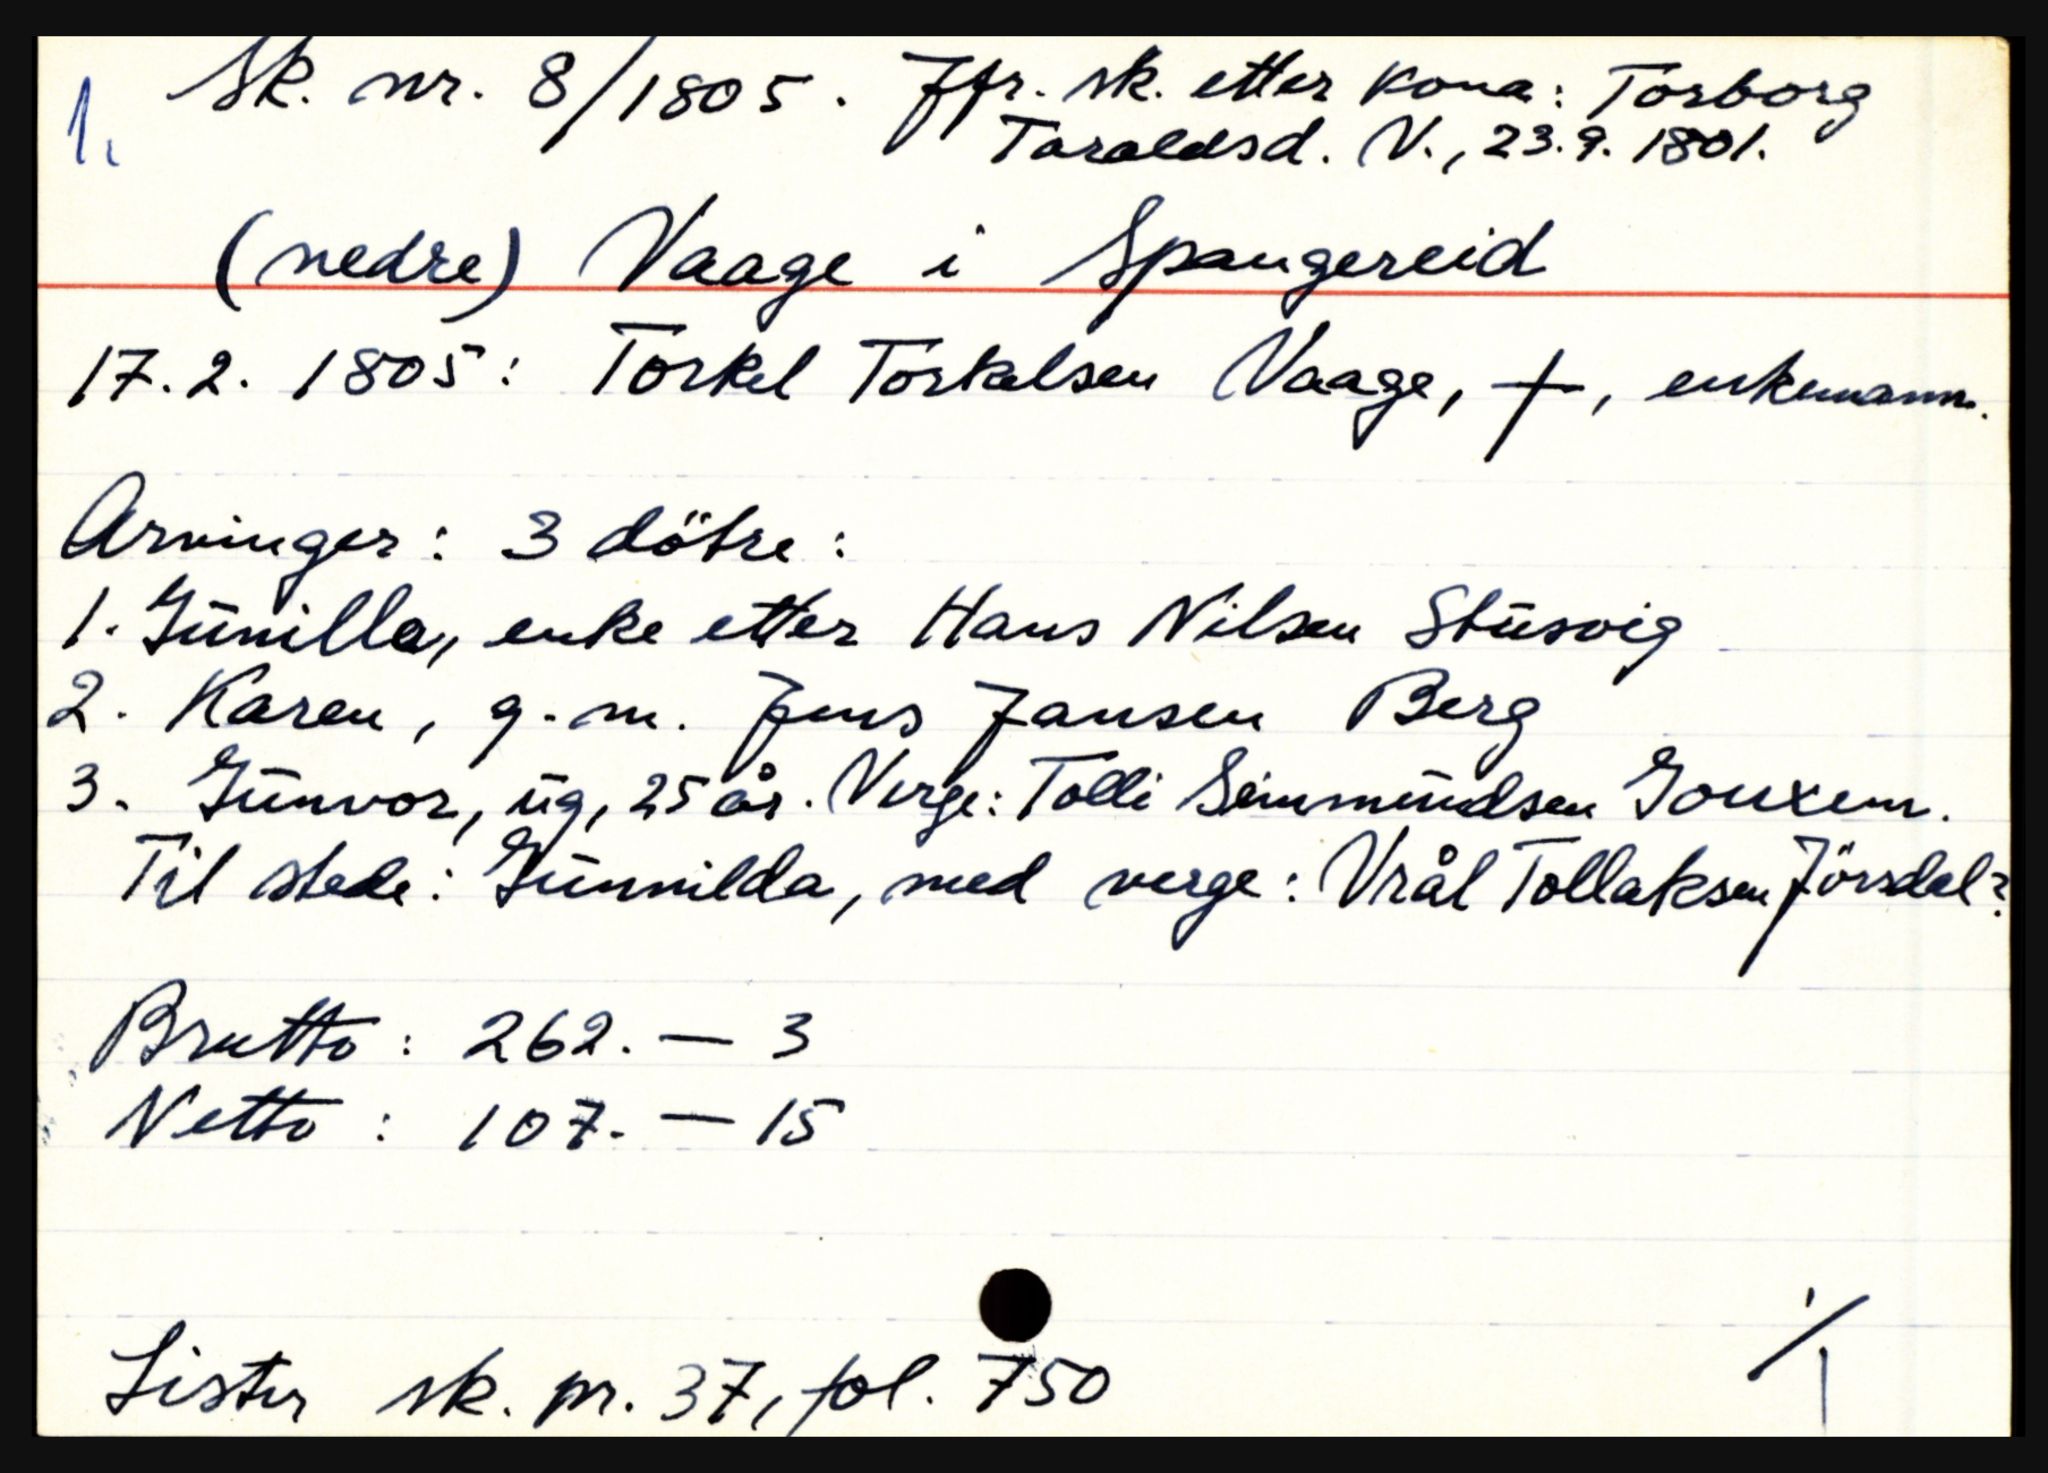 Sk. nr. 8/1805. Jfr. sk. etter kona: Torborg
1. Taraldsd. V., 23.9.1801.
(nedre) Vaage i Spangereid
17.2. 1805: Torkel Torkelsen Vaage, †, enkemann.
Arvinger: 3 dötre:
1. Gunilla, enke etter Hans Nilsen Stusvig
2. Karen, g.m. Jens Jansen Berg
3. Gunvor, ug, 25 år. Verge: Tolli Semmundsen Gouxem.
Til stede: Gunnilda, med verge: Vrål Tollaksen Jörsdal?
Brutto: 262. — 3
Netto: 107. — 15
1/1
Lister sk. pr. 37, fol. 750